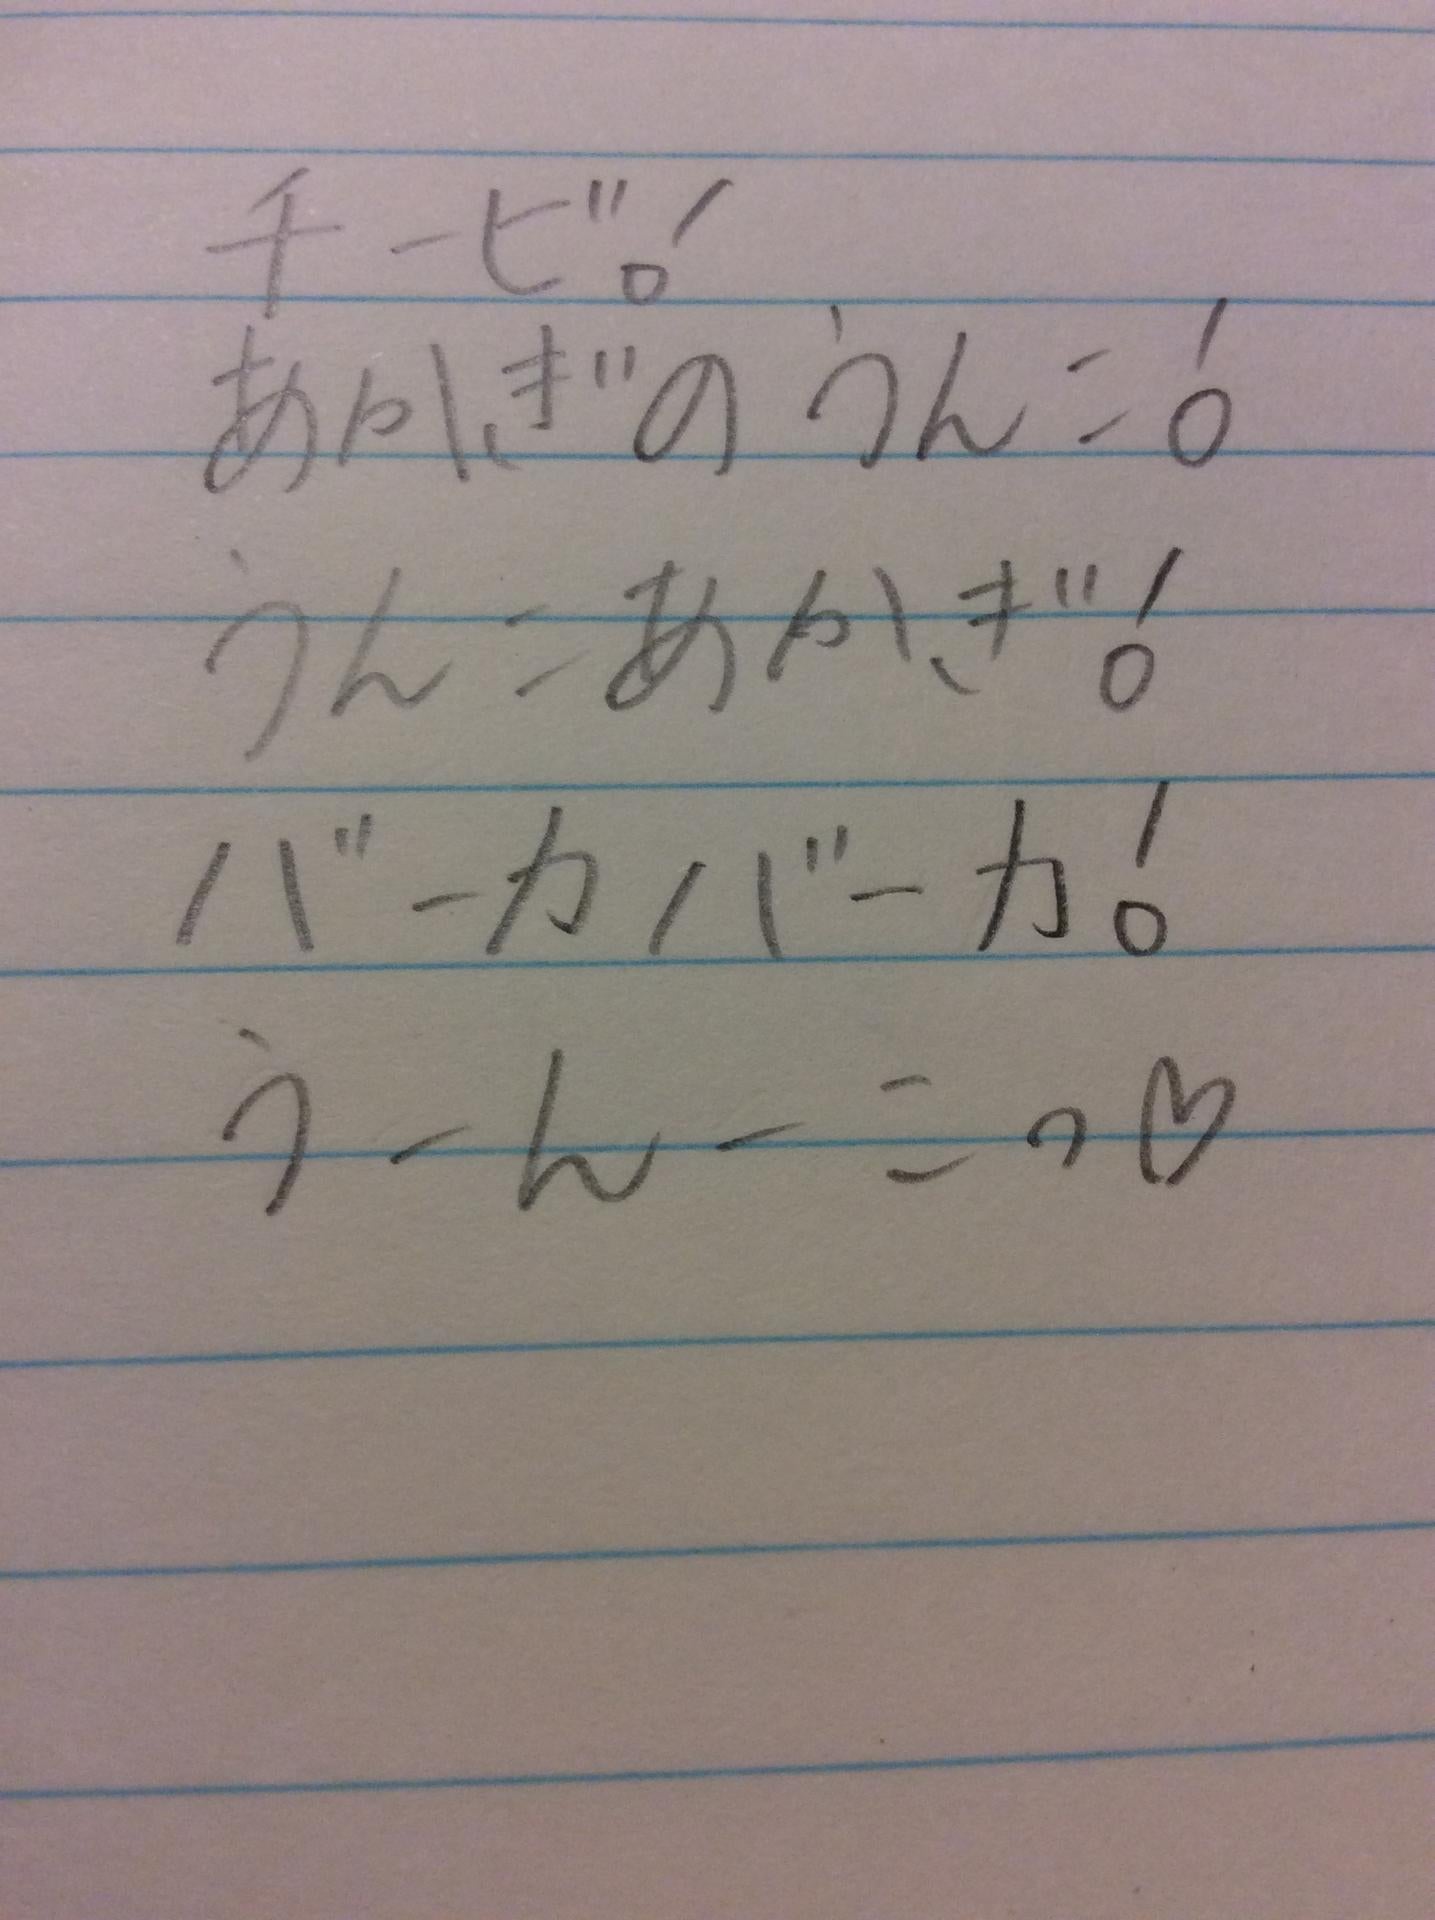 チービ!
あかぎのうんこ!
うんこあかぎ!
バーカバーカ!
うーんーこっ♡